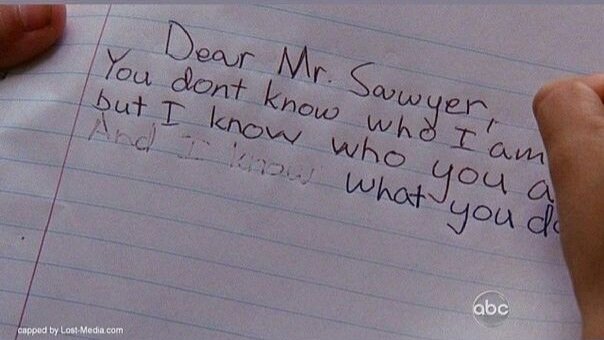 Dear Mr. Sawyer,
You dont know who I am
but I know who you a
And I know what you do
abc
capped by Lost-Media.com